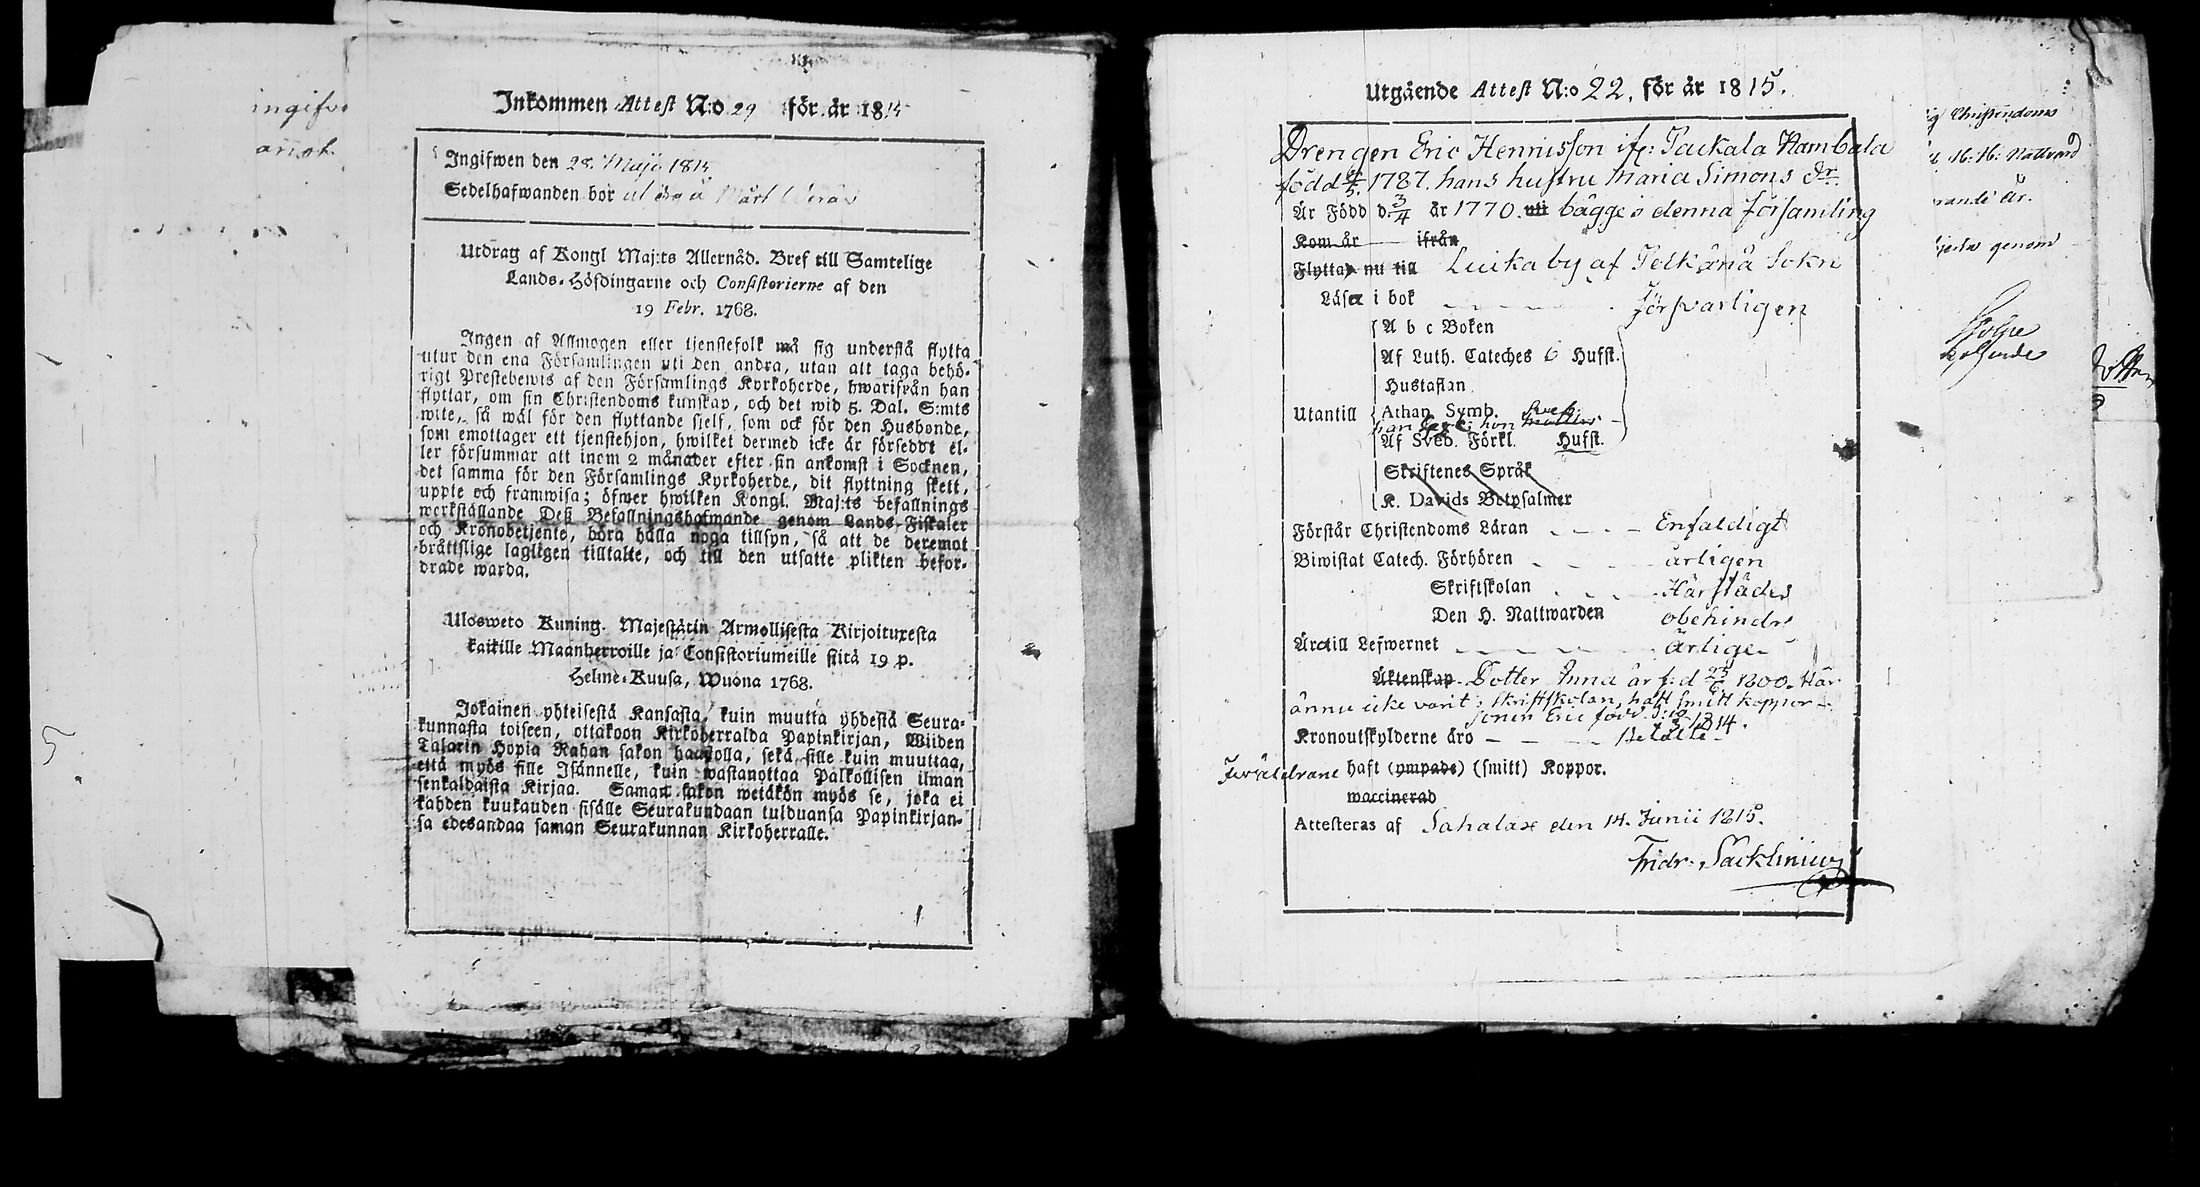 Inkommen Attest N:o 29 för år 1815
Ingifwen den 28. Maji 1815
Sedelhafwanden bor
Utdrag af Kongl Maj:ts Allernåd. Bref till Samtelige
Lands-Höfdingarne och Consistorierne af den
19 Febr. 1768.
Ingen af Allmogen eller tjenstefolk må sig understå flytta
utur den ena Församlingen uti den andra, utan att taga behö-
rigt Prestebewis af den Församlings Kyrkoherde, hwarifrån han
flyttar, om sin Christendoms kunskap, och det wid 5. Dal. S:mts
wite, så wäl för den flyttande sjelf, som ock för den Husbonde,
som emottager ett tjenstehjon, hwilket dermed icke är försedt el-
ler försummar att inom 2 månader efter sin ankomst i Socknen,
det samma för den Församlings Kyrkoherde, dit flyttning skett,
uppte och framwisa; öfwer hwilken Kongl. Maj:ts befallnings
werkställande Deß Befallningshafwande genom Lands-Fiskaler
och Kronobetjente, böra hålla noga tillsyn, så att de deremot
bråttslige lagligen tilltalte, och till den utsatte plikten befor-
drade warda.
Ulosweto Kuning. Majestätin Armollisesta Kirjoituxesta
kaikille Maanherroille ja Consistoriumeille siitä 19 p.
Helme-Kuusa, Wuona 1768.
Jokainen yhteisestä Kansasta, kuin muutta yhdestä Seura-
kunnasta toiseen, ottakoon Kirkoherralda Papinkirjan, Wiiden
Talarin Hopia Rahan sakon haastolla, sekä sille kuin muuttaa,
että myös sille Isännelle, kuin wastanottaa Palkollisen ilman
senkaldaista Kirjaa. Saman sakon wetäkön myös se, joka ei
kahden kuukauden sisälle Seurakundaan tulduansa Papinkirjan-
sa edesandaa saman Seurakunnan Kirkoherralle.
Utgående Attest N:o 22. för år 1815.
Drengen Eric Hennisson ifr: Packala Hambala
född 1787. hans hustru Maria Simons dr.
Är Född d. 3/4 år 1770. uti bägge i denna församling
Kom år ifrån
Flyttar nu till Luika by af Pelkänä Sokn
Läser i bok försvarligen
A b c Boken
Af Luth. Cateches 6 Hufst.
Hustaflan
Utantill Athan. Symb.
han hon
Af Sveb. Förkl. Hufst.
Skriftenes Språk
K. Davids Botpsalmer
Förstår Christendoms Läran Enfaldigt
Biwistat Catech. Förhören årligen
Skriftskolan Härstädes
Den H. Nattwarden obehindr
Äro till Lefwernet ärlige
Äktenskap Dotter Anna är f: d 1800. Här
ännu icke varit i skriftskolan, haft smitt koppor
Sonen Eric född 1814.
Kronoutskylderne äro Betalte
Föräldrarne haft (ympade) (smitt) Koppor.
waccinerad
Attesteras af Sahalax den 14. Junii 1815.
Fridr. Sacklinius
Christendoms
H: H: Nattvard
är.
genom